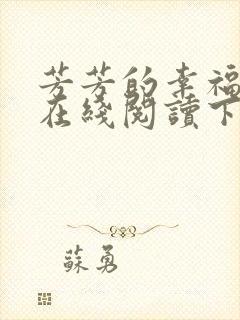 芳芳的幸福
在綫閱讀下
蘇勇